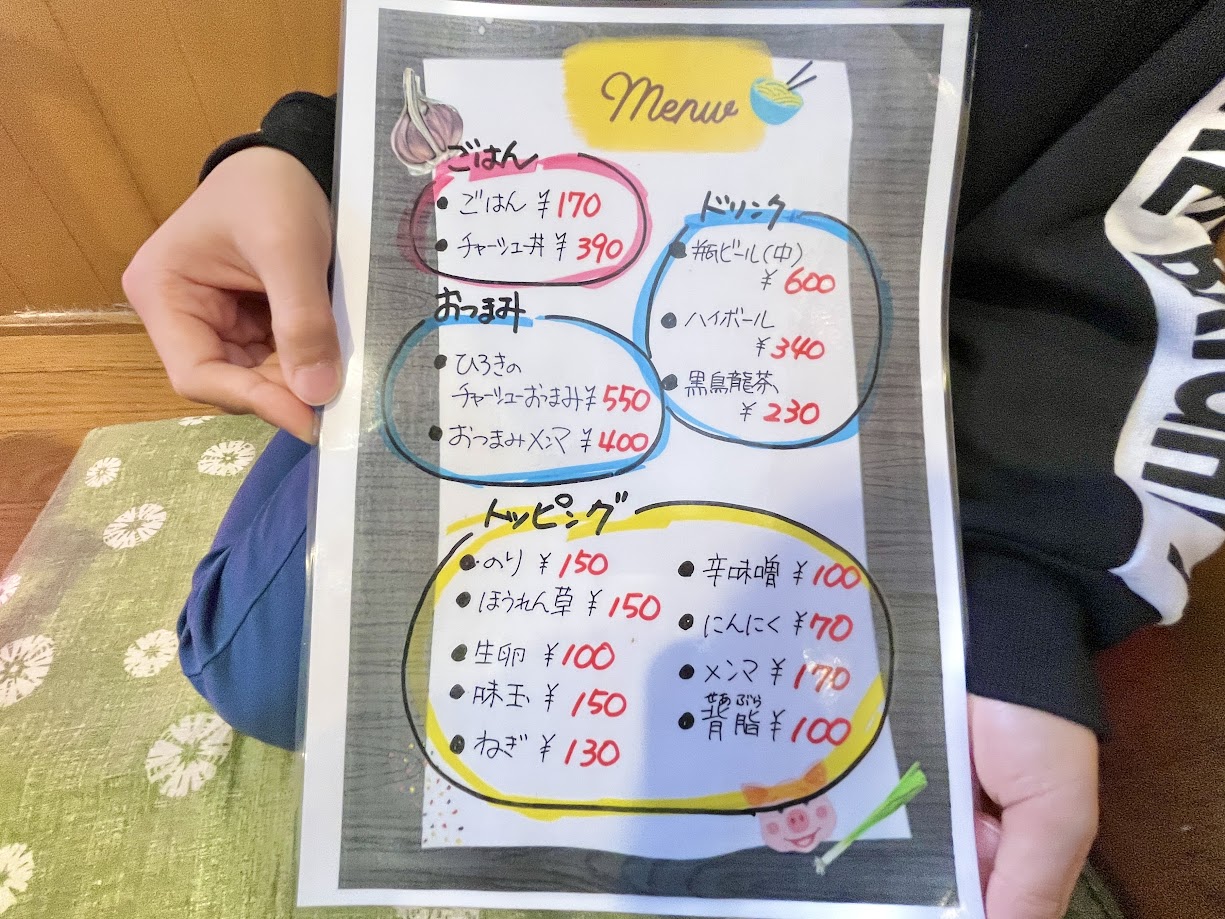 Menu
ごはん
● ごはん ¥170
● チャーシュー丼 ¥390
ドリンク
● 瓶ビール(中)
¥600
● ハイボール
¥340
● 黒烏龍茶
¥230
おつまみ
● ひろきの
チャーシューおつまみ ¥550
● おつまみメンマ ¥400
トッピング
● のり ¥150
● ほうれん草 ¥150
● 生卵 ¥100
● 味玉 ¥150
● ねぎ ¥130
● 辛味噌 ¥100
● にんにく ¥70
● メンマ ¥170
せあぶら
● 背脂 ¥100